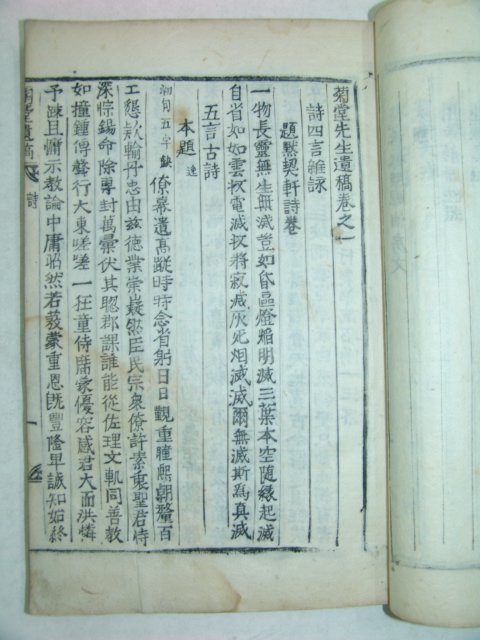 菊堂先生遺稿卷之一
詩四言雜詠
題默契軒詩卷
一物長靈無生無滅豈如昏區燈熖明滅三業本空隨緣起滅
自省如如雲收電滅収將寂滅灰死烟滅滅爾無滅斯為真滅
五言古詩
本題 逸
初旬五字缺 僚幕遺高蹤時時念省躬日日觀重瞳熙朝釐百
工懇款輸丹忠由玆德業崇嶷然臣民宗衆僚許素衷聖君恃
深悰錫命除專封萬彙伏其聰郡課誰能從佐理文軌同善教
如撞鍾傳聲行大東嗟嗟一狂童侍席蒙優容感君大而洪憐
予疎且慵示教論中庸昭然若發蒙重恩旣豐隆卑誠知始終
菊堂遺稿 詩 一